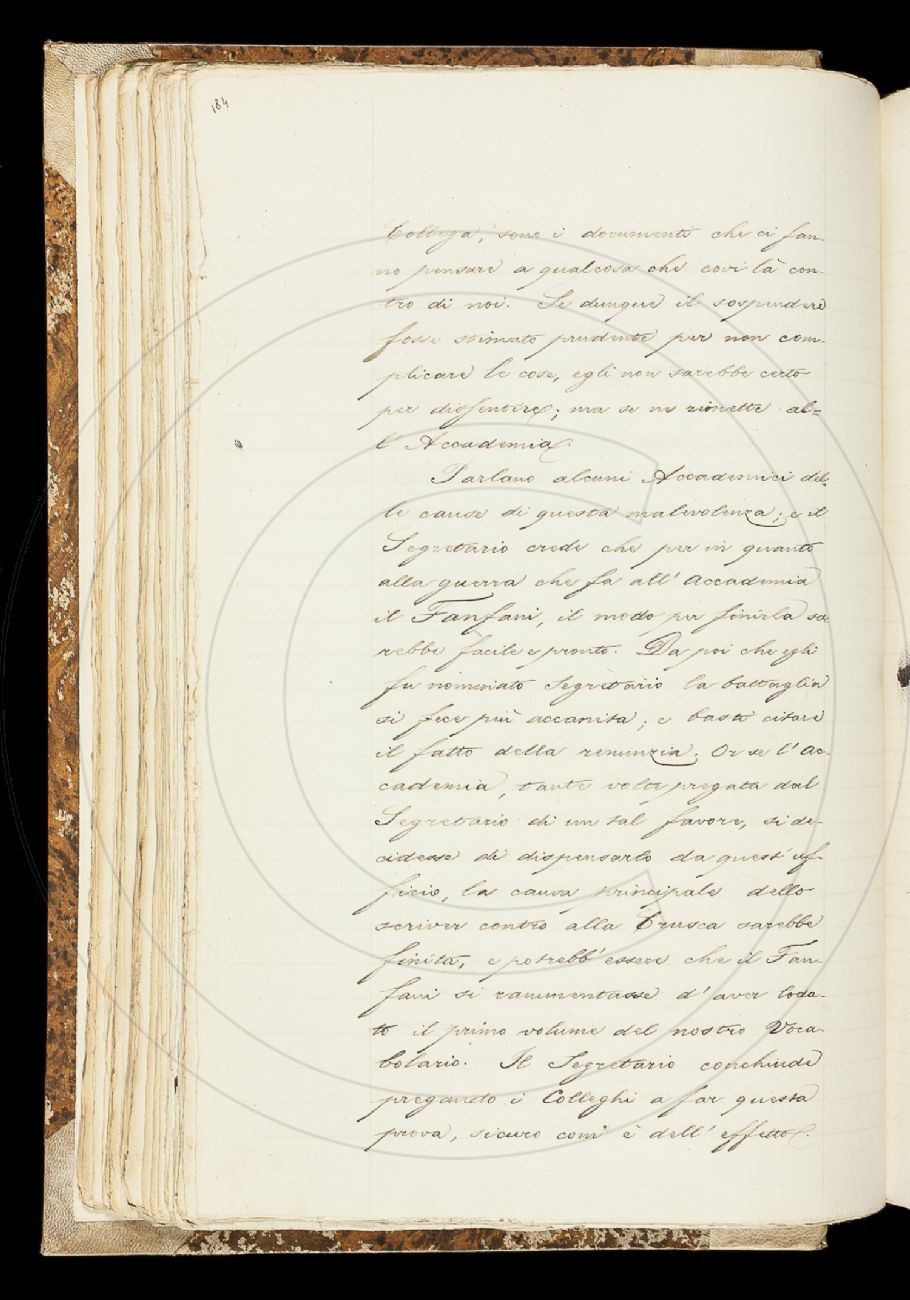 184
Collega, sono i documenti che ci fan-
no pensare a qualcosa che covi là con-
tro di noi. Se dunque il sospendere
fosse stimato prudente per non com-
plicare le cose, egli non sarebbe certo
per dissentire; ma se ne rimette al-
l' Accademia.
Parlano alcuni Accademici del-
le cause di questa malevolenza; e il
Segretario crede che per in quanto
alla guerra che fa all' Accademia
il Fanfani, il modo per finirla sa
rebbe facile e pronto. Da poi che egli
fu nominato Segretario la battaglia
si fece più accanita; e basti citare
il fatto della renunzia. Or se l' Ac-
cademia, tante volte pregata dal
Segretario di un tal favore, si de-
cidesse di dispensarlo da quest' uf-
ficio, la causa principale dello
scriver contro alla Crusca sarebbe
finita, e potrebb' essere che il Fan-
fani si rammentasse d' aver loda-
to il primo volume del nostro Voca-
bolario. Il Segretario conchiude
pregando i Colleghi a far questa
prova, sicuro com' è dell' effetto.